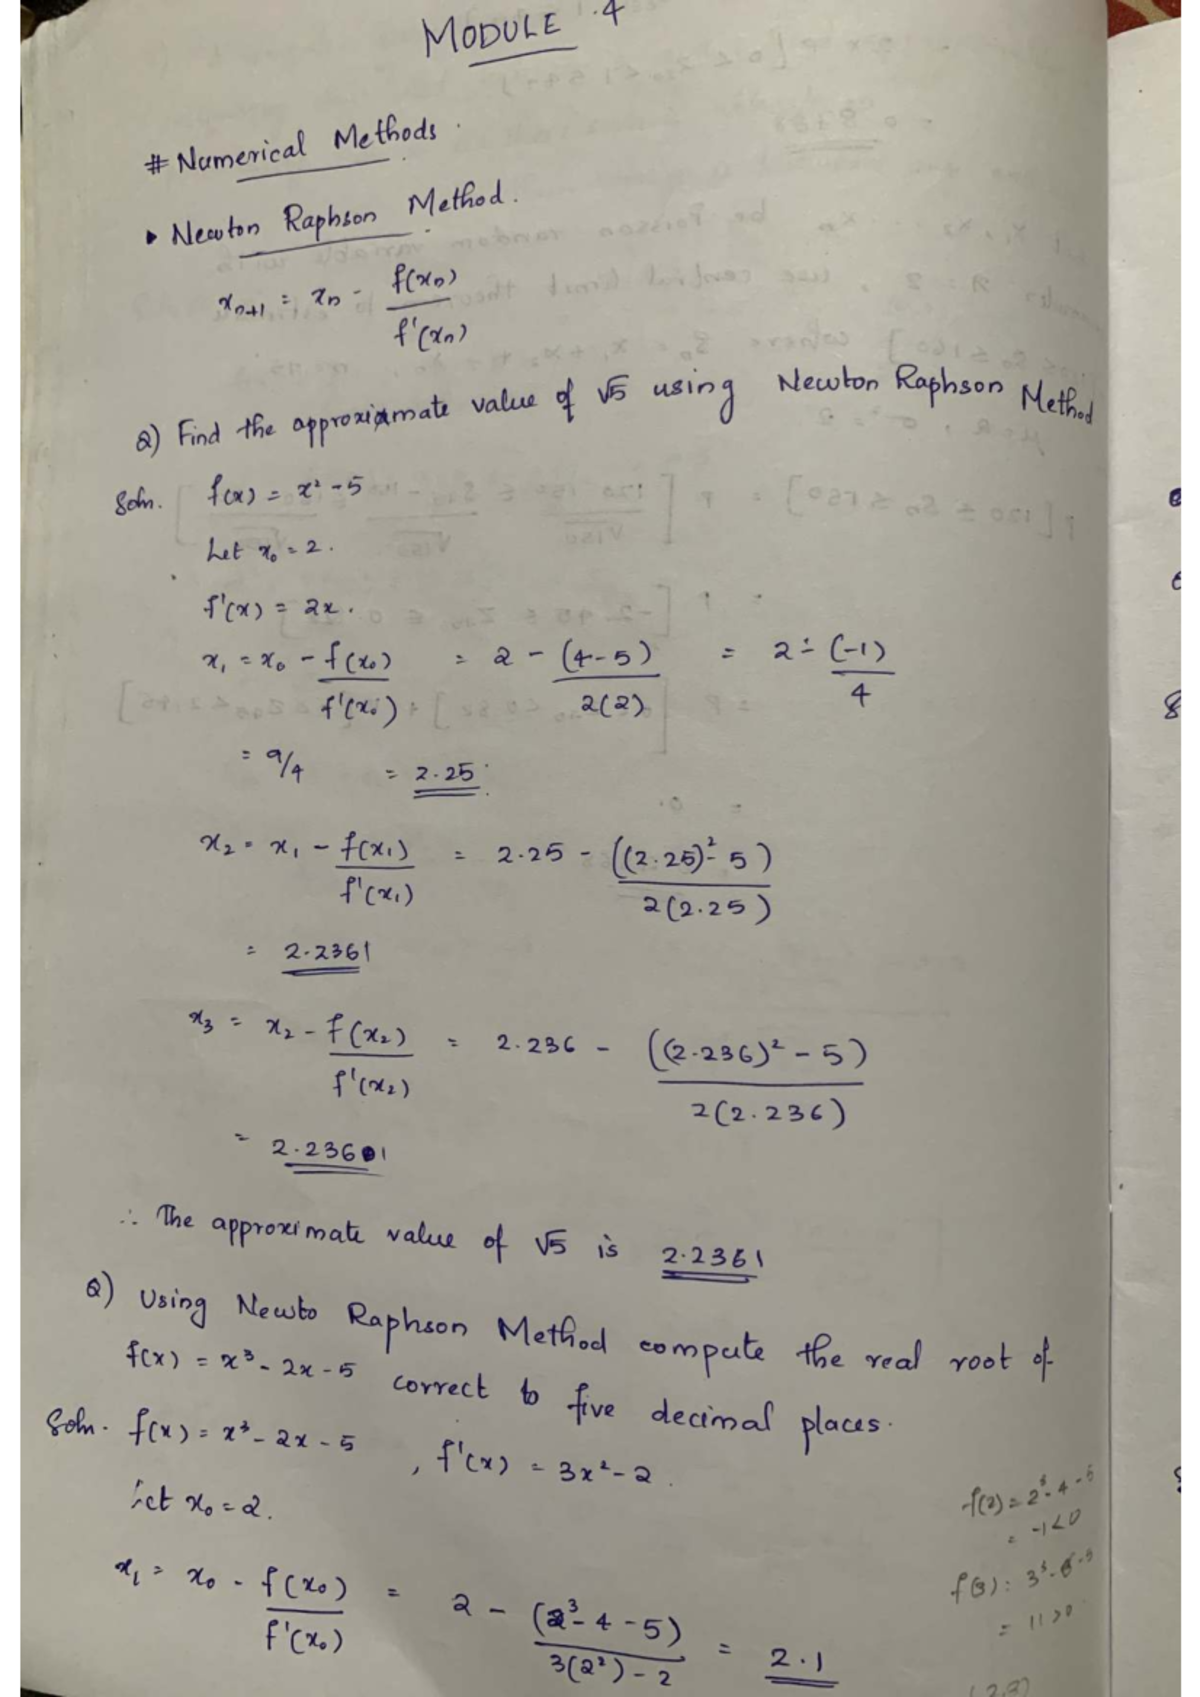 MODULE .4
# Numerical Methods.
▸ Newton Raphson Method.
xn+1 = xn - f(xn)/f'(xn)
Q) Find the approxiamate value of √5 using Newton Raphson Method
Soln. f(x) = x² - 5
Let x₀ = 2.
f'(x) = 2x.
x₁ = x₀ - f(x₀)/f'(x₀) = 2 - (4-5)/2(2) = 2 - (-1)/4
= 9/4 = 2.25
x₂ = x₁ - f(x₁)/f'(x₁) = 2.25 - ((2.25)² - 5)/2(2.25)
= 2.2361
x₃ = x₂ - f(x₂)/f'(x₂) = 2.236 - ((2.236)² - 5)/2(2.236)
= 2.23601
∴ The approximate value of √5 is 2.2361
Q) Using Newto Raphson Method compute the real root of
f(x) = x³ - 2x - 5 correct to five decimal places.
Soln. f(x) = x³ - 2x - 5, f'(x) = 3x² - 2.
Let x₀ = 2.
f(2) = 2³ - 4 - 5
= -1 < 0
x₁ = x₀ - f(x₀)/f'(x₀) = 2 - (2³ - 4 - 5)/3(2²) - 2 = 2.1
f(3) : 3³ - 6 - 5
= 11 > 0
(2,3)